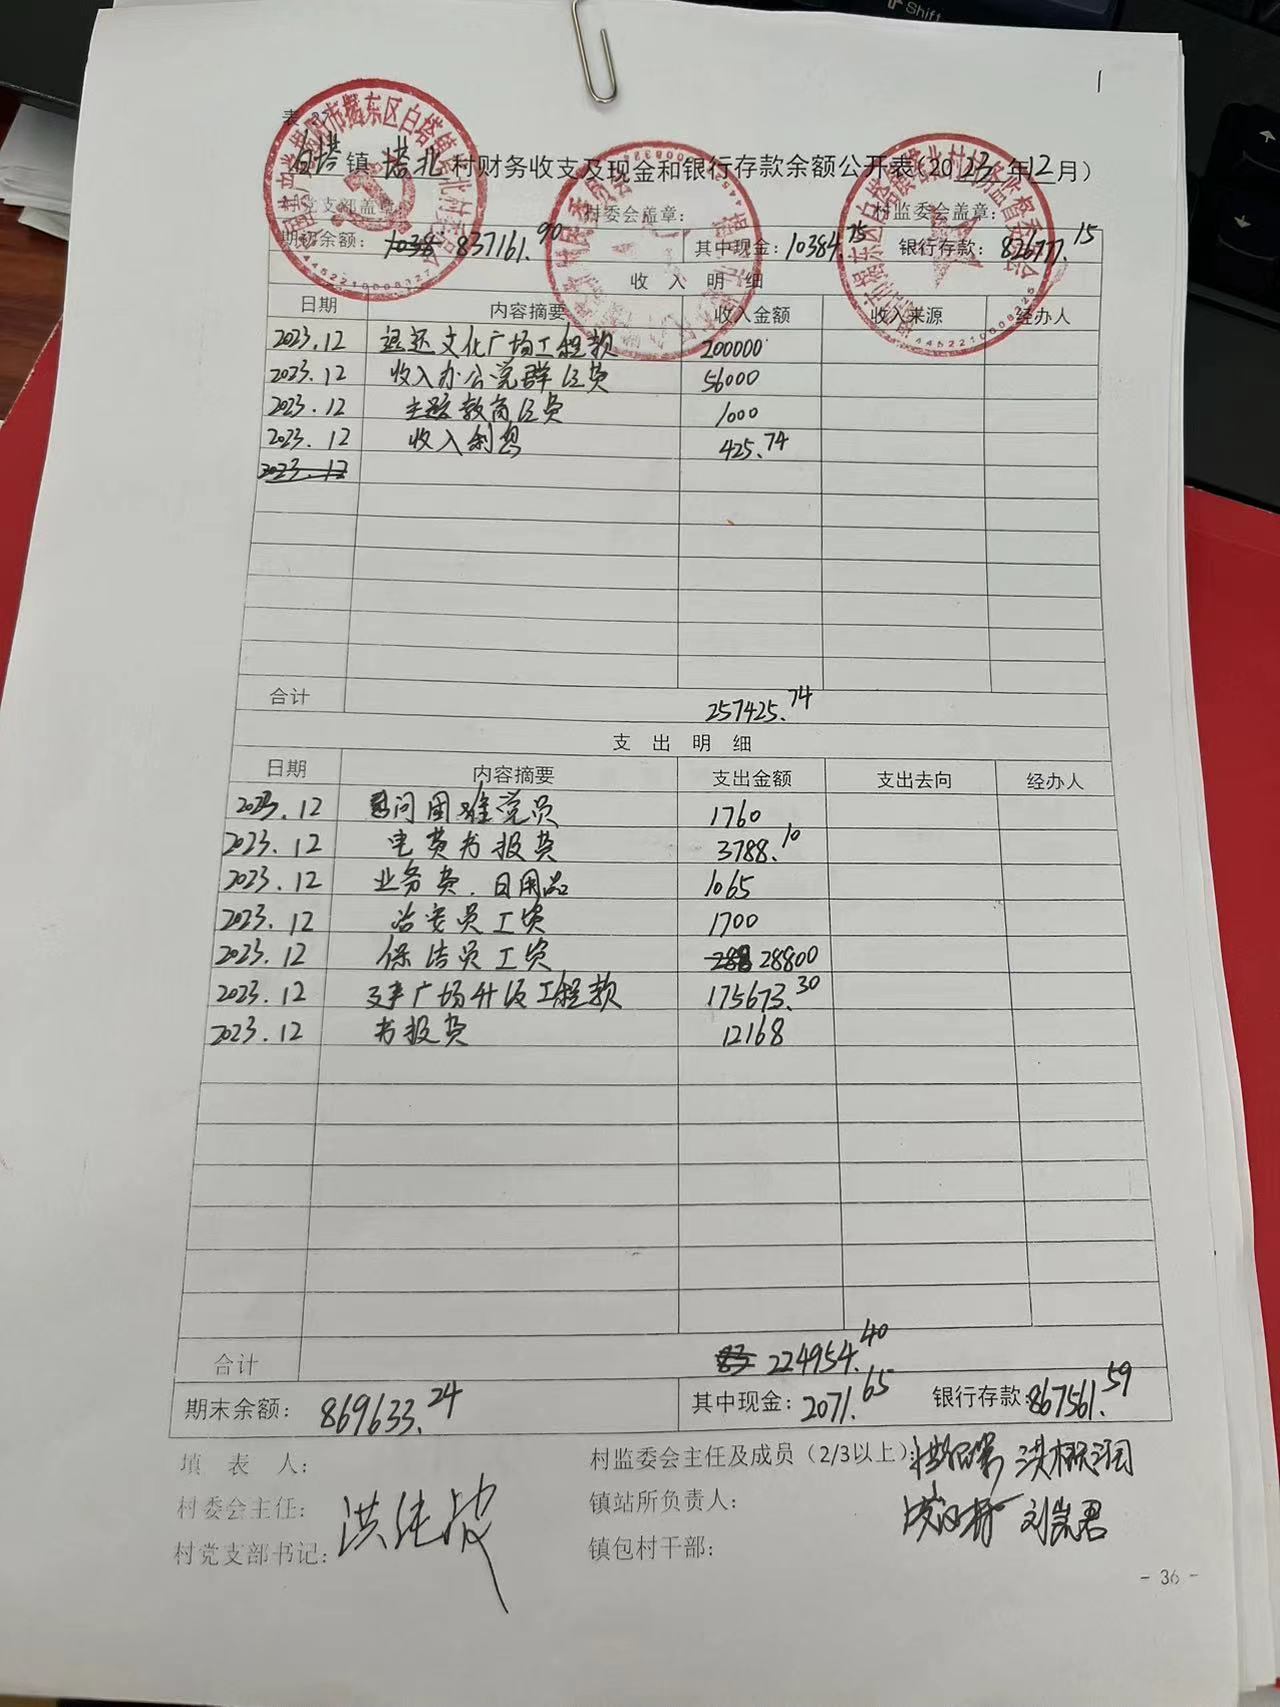 1
表
白塔镇 塔北 村财务收支及现金和银行存款余额公开表(2023年12月)
村党支部盖章: 村委会盖章: 村监委会盖章:
期初余额: 837161.90 其中现金: 10384.75 银行存款: 826777.15
收 入 明 细
日期 内容摘要 收入金额 收入来源 经办人
2023.12 退还文化广场工程款 200000
2023.12 收入办公党群经费 56000
2023.12 主题教育经费 1000
2023.12 收入利息 425.74
2023.12
合计 257425.74
支 出 明 细
日期 内容摘要 支出金额 支出去向 经办人
2023.12 慰问困难党员 1760
2023.12 电费书报费 3788.10
2023.12 业务费、日用品 1065
2023.12 治安员工资 1700
2023.12 保洁员工资 28800
2023.12 广场升级工程款 175673.30
2023.12 书报费 12168
合计 224954.40
期末余额: 869633.24 其中现金: 2071.65 银行存款: 867561.59
填 表 人:
村监委会主任及成员(2/3以上):
村委会主任:
镇站所负责人: 刘岚君
村党支部书记: 洪
镇包村干部:
- 36 -